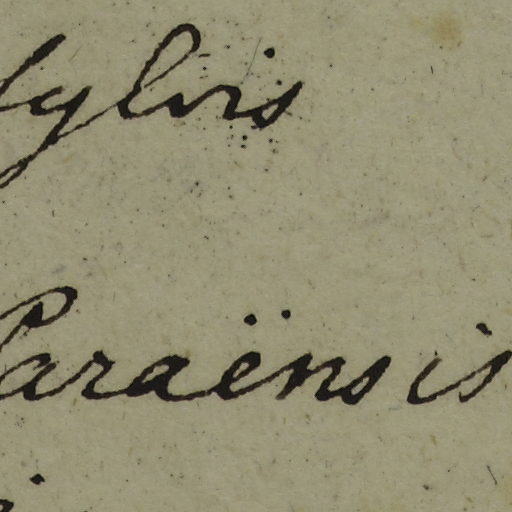 sylvis
Paraënsis